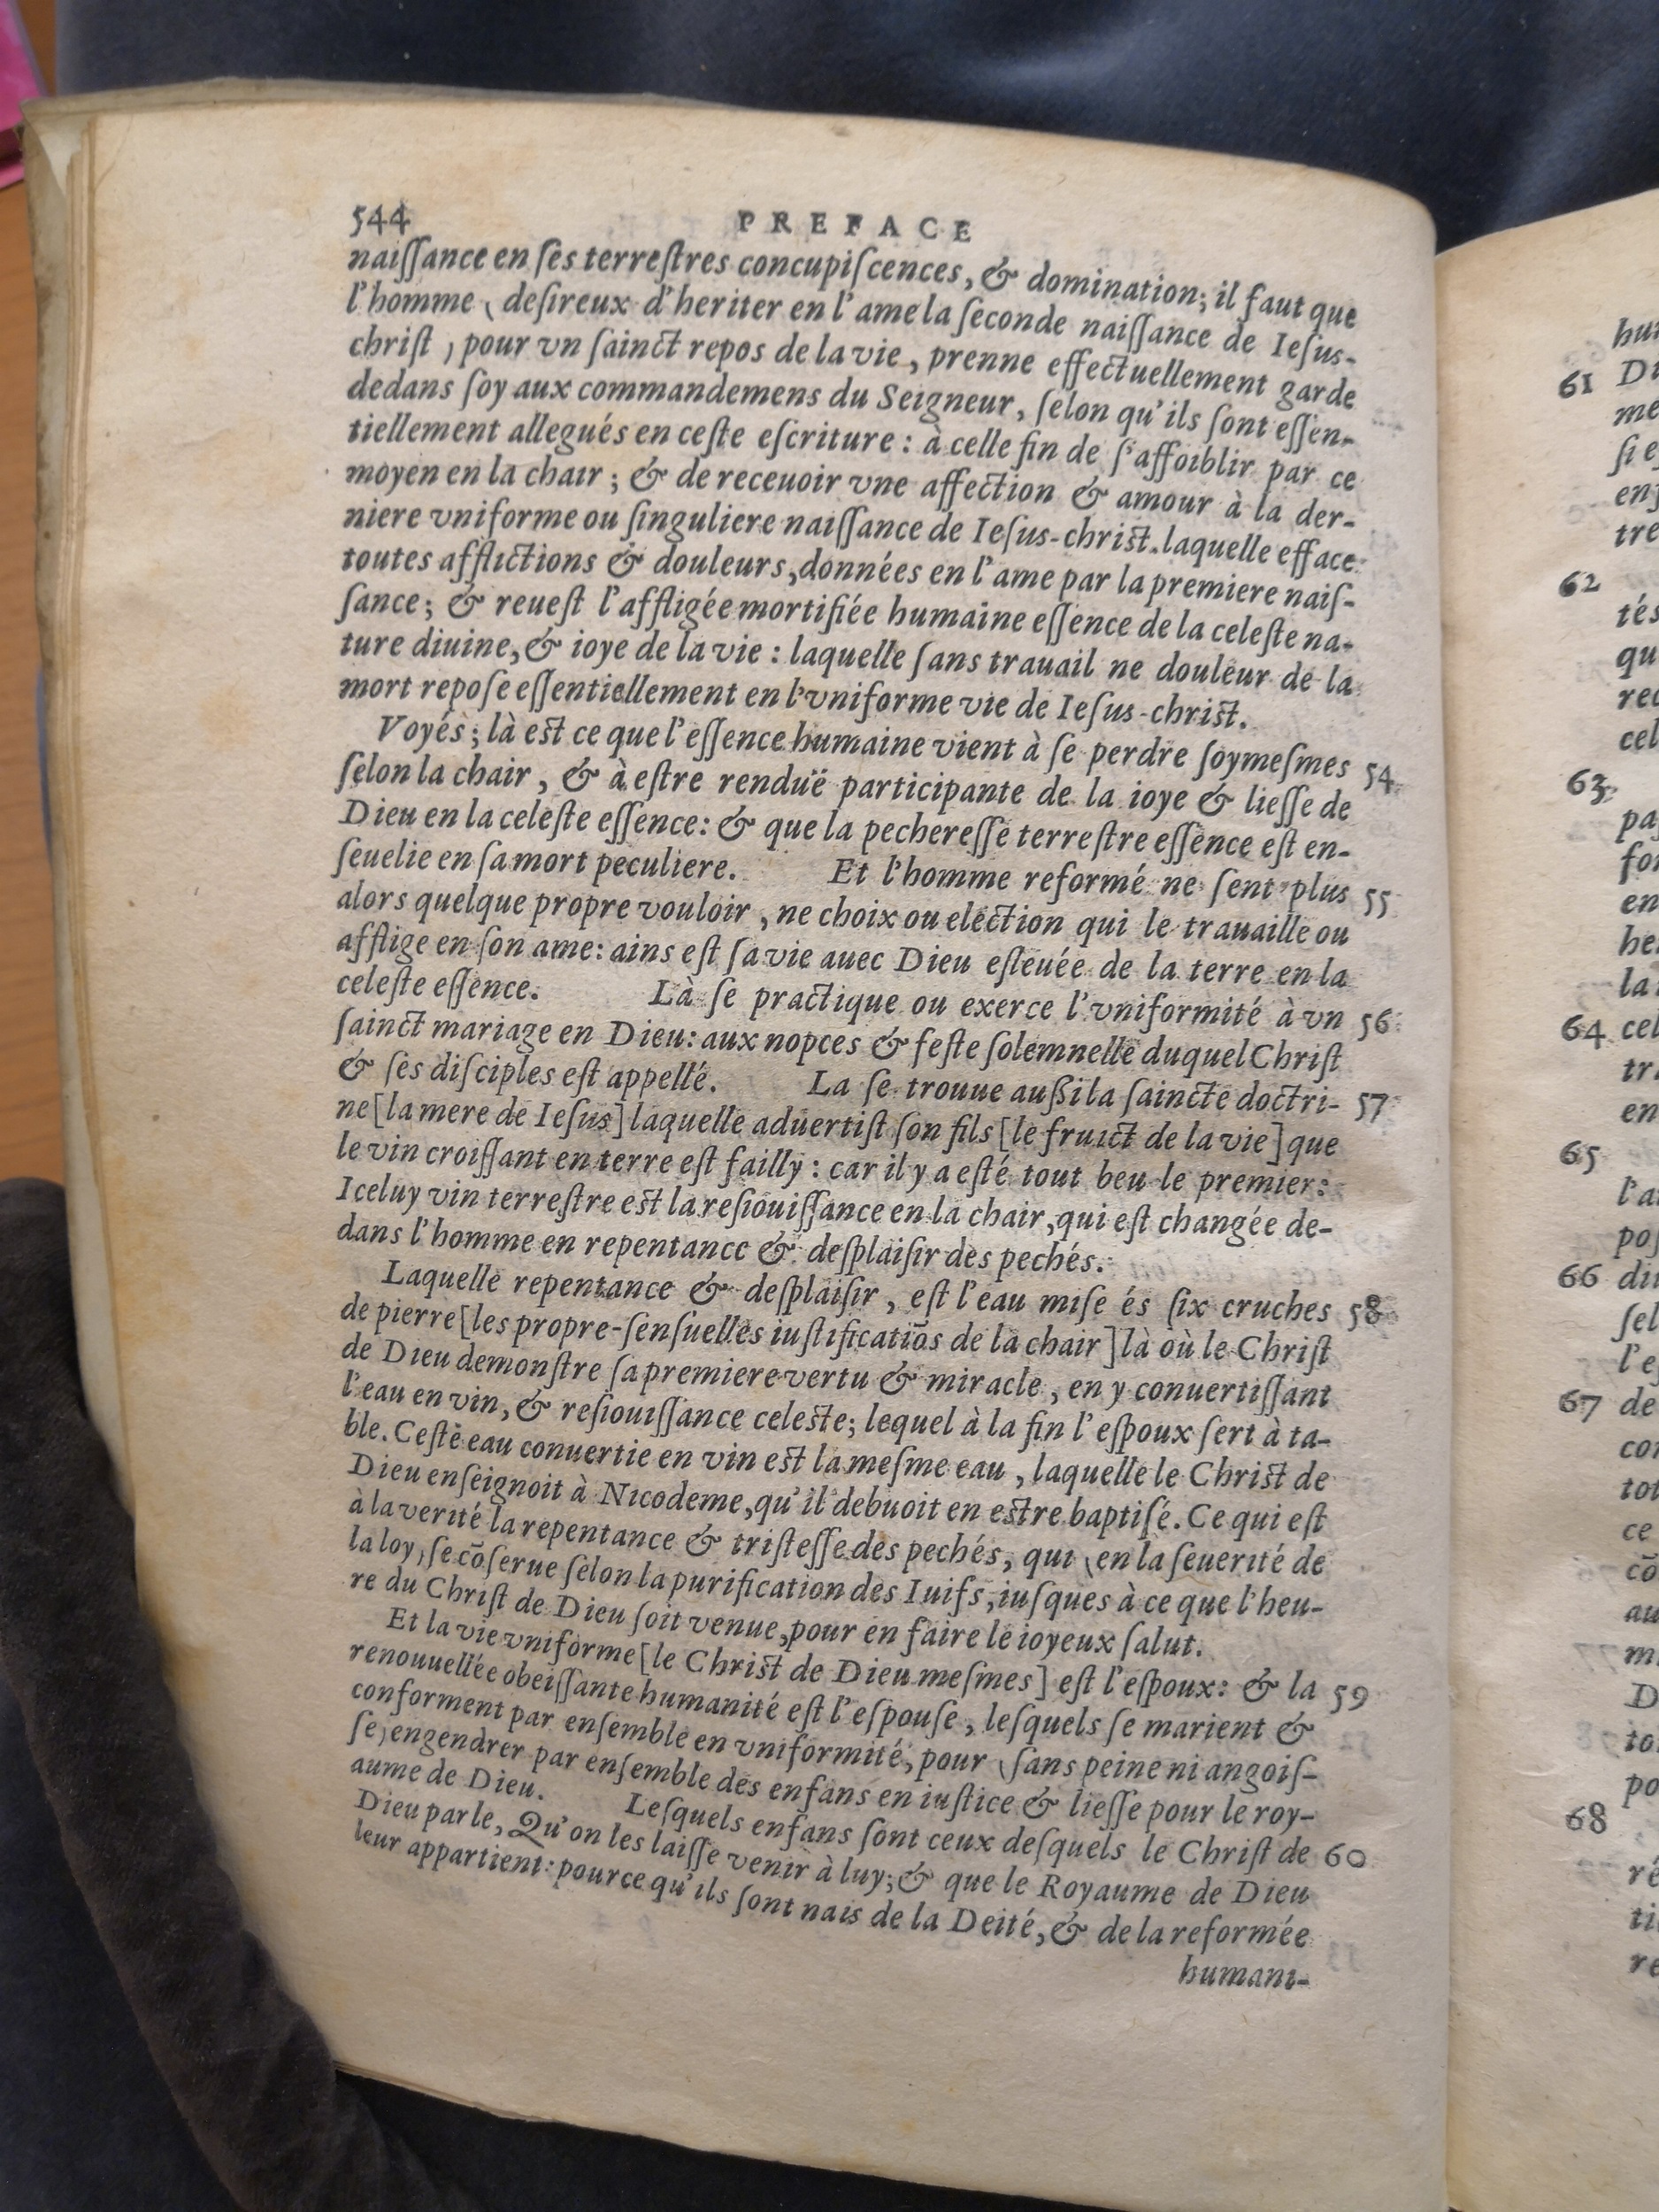 544 PREFACE
naiſſance en ſes terreſtres concupiſcences, & domination; il faut que
l'homme (deſireux d'heriter en l'ame la ſeconde naiſſance de Ieſus-
chriſt, pour vn ſainct repos de la vie, prenne effectuellement garde
dedans ſoy aux commandemens du Seigneur, ſelon qu'ils ſont eſſen-
tiellement allegués en ceſte eſcriture: à celle fin de ſ'affoiblir par ce
moyen en la chair; & de receuoir vne affection & amour à la der-
niere vniforme ou ſinguliere naiſſance de Ieſus-chriſt. laquelle efface
toutes afflictions & douleurs, données en l'ame par la premiere naiſ-
ſance; & reueſt l'affligée mortifiée humaine eſſence de la celeſte na-
ture diuine, & ioye de la vie: laquelle ſans trauail ne douleur de la
mort repoſe eſſentiellement en l'vniforme vie de Ieſus-chriſt.
Voyés; là eſt ce que l'eſſence humaine vient à ſe perdre ſoymeſmes 54
ſelon la chair, & à eſtre renduë participante de la ioye & lieſſe de
Dieu en la celeſte eſſence: & que la pechereſſe terreſtre eſſence eſt en-
ſeuelie en ſa mort peculiere. Et l'homme reformé ne ſent plus 55
alors quelque propre vouloir, ne choix ou election qui le trauaille ou
afflige en ſon ame: ains eſt ſa vie auec Dieu eſleuée de la terre en la
celeſte eſſence. Là ſe practique ou exerce l'vniformité à vn 56
ſainct mariage en Dieu: aux nopces & feſte ſolemnelle duquel Chriſt
& ſes diſciples eſt appellé. La ſe trouue außi la ſaincte doctri- 57
ne [la mere de Ieſus] laquelle aduertiſt ſon fils [le fruict de la vie] que
le vin croiſſant en terre eſt failly: car il y a eſté tout beu le premier:
Iceluy vin terreſtre eſt la reſiouiſſance en la chair, qui eſt changée de-
dans l'homme en repentance & deſplaiſir des pechés.
Laquelle repentance & deſplaiſir, eſt l'eau miſe és ſix cruches 58
de pierre [les propre-ſenſuelles iuſtificatiõs de la chair] là où le Chriſt
de Dieu demonſtre ſa premiere vertu & miracle, en y conuertiſſant
l'eau en vin, & reſiouiſſance celeſte; lequel à la fin l'eſpoux ſert à ta-
ble. Ceſte eau conuertie en vin eſt la meſme eau, laquelle le Chriſt de
Dieu enſeignoit à Nicodeme, qu'il debuoit en eſtre baptiſé. Ce qui eſt
à la verité la repentance & triſteſſe des pechés, qui (en la ſeuerité de
la loy) ſe cõſerue ſelon la purification des Iuifs, iuſques à ce que l'heu-
re du Chriſt de Dieu ſoit venue, pour en faire le ioyeux ſalut.
Et la vie vniforme [le Chriſt de Dieu meſmes] eſt l'eſpoux: & la 59
renouuellée obeiſſante humanité eſt l'eſpouſe, leſquels ſe marient &
conforment par enſemble en vniformité, pour (ſans peine ni angoiſ-
ſe) engendrer par enſemble des enfans en iuſtice & lieſſe pour le roy-
aume de Dieu. Leſquels enfans ſont ceux deſquels le Chriſt de 60
Dieu parle, Qu'on les laiſſe venir à luy; & que le Royaume de Dieu
leur appartient: pource qu'ils ſont nais de la Deité, & de la reformée
humani-
61
62
63
64 cel
65
66
67 de
68